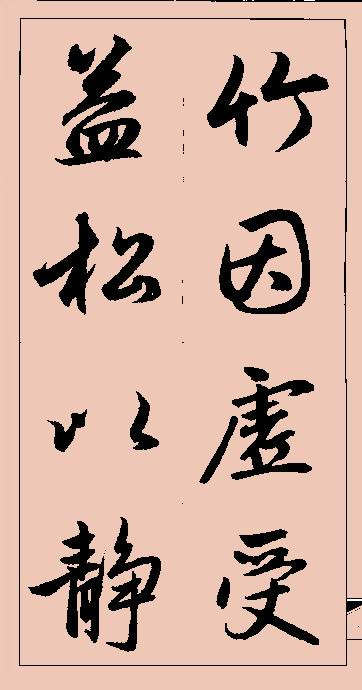 竹因虚受
益松以静